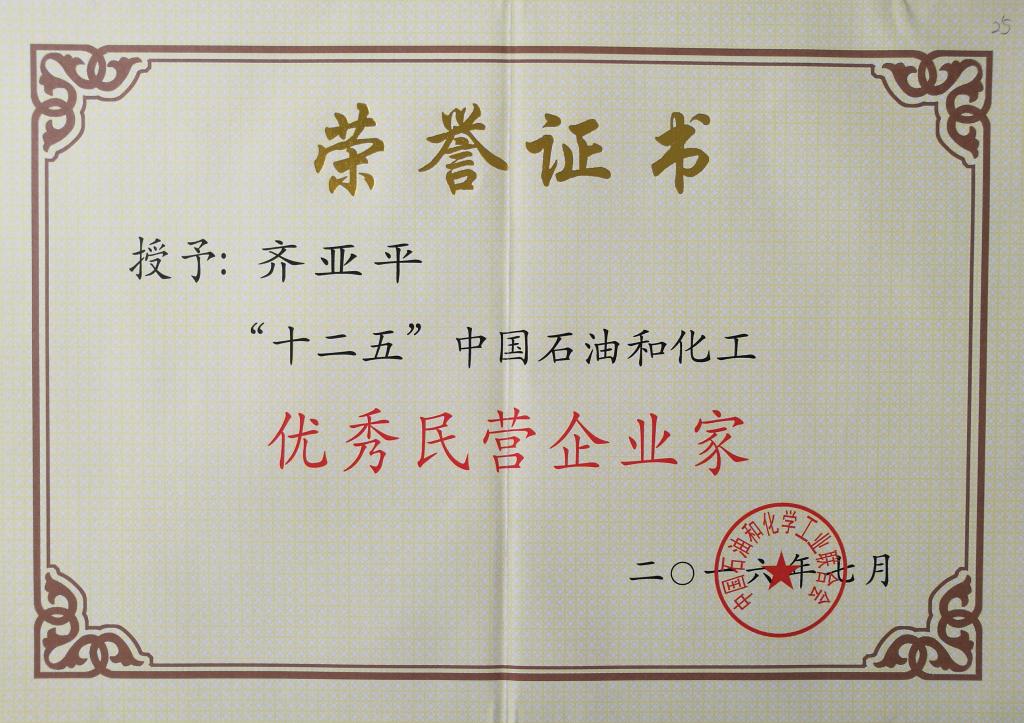 25
荣誉证书
授予: 齐亚平
“十二五”中国石油和化工
优秀民营企业家
二〇一六年七月
中国石油和化学工业联合会